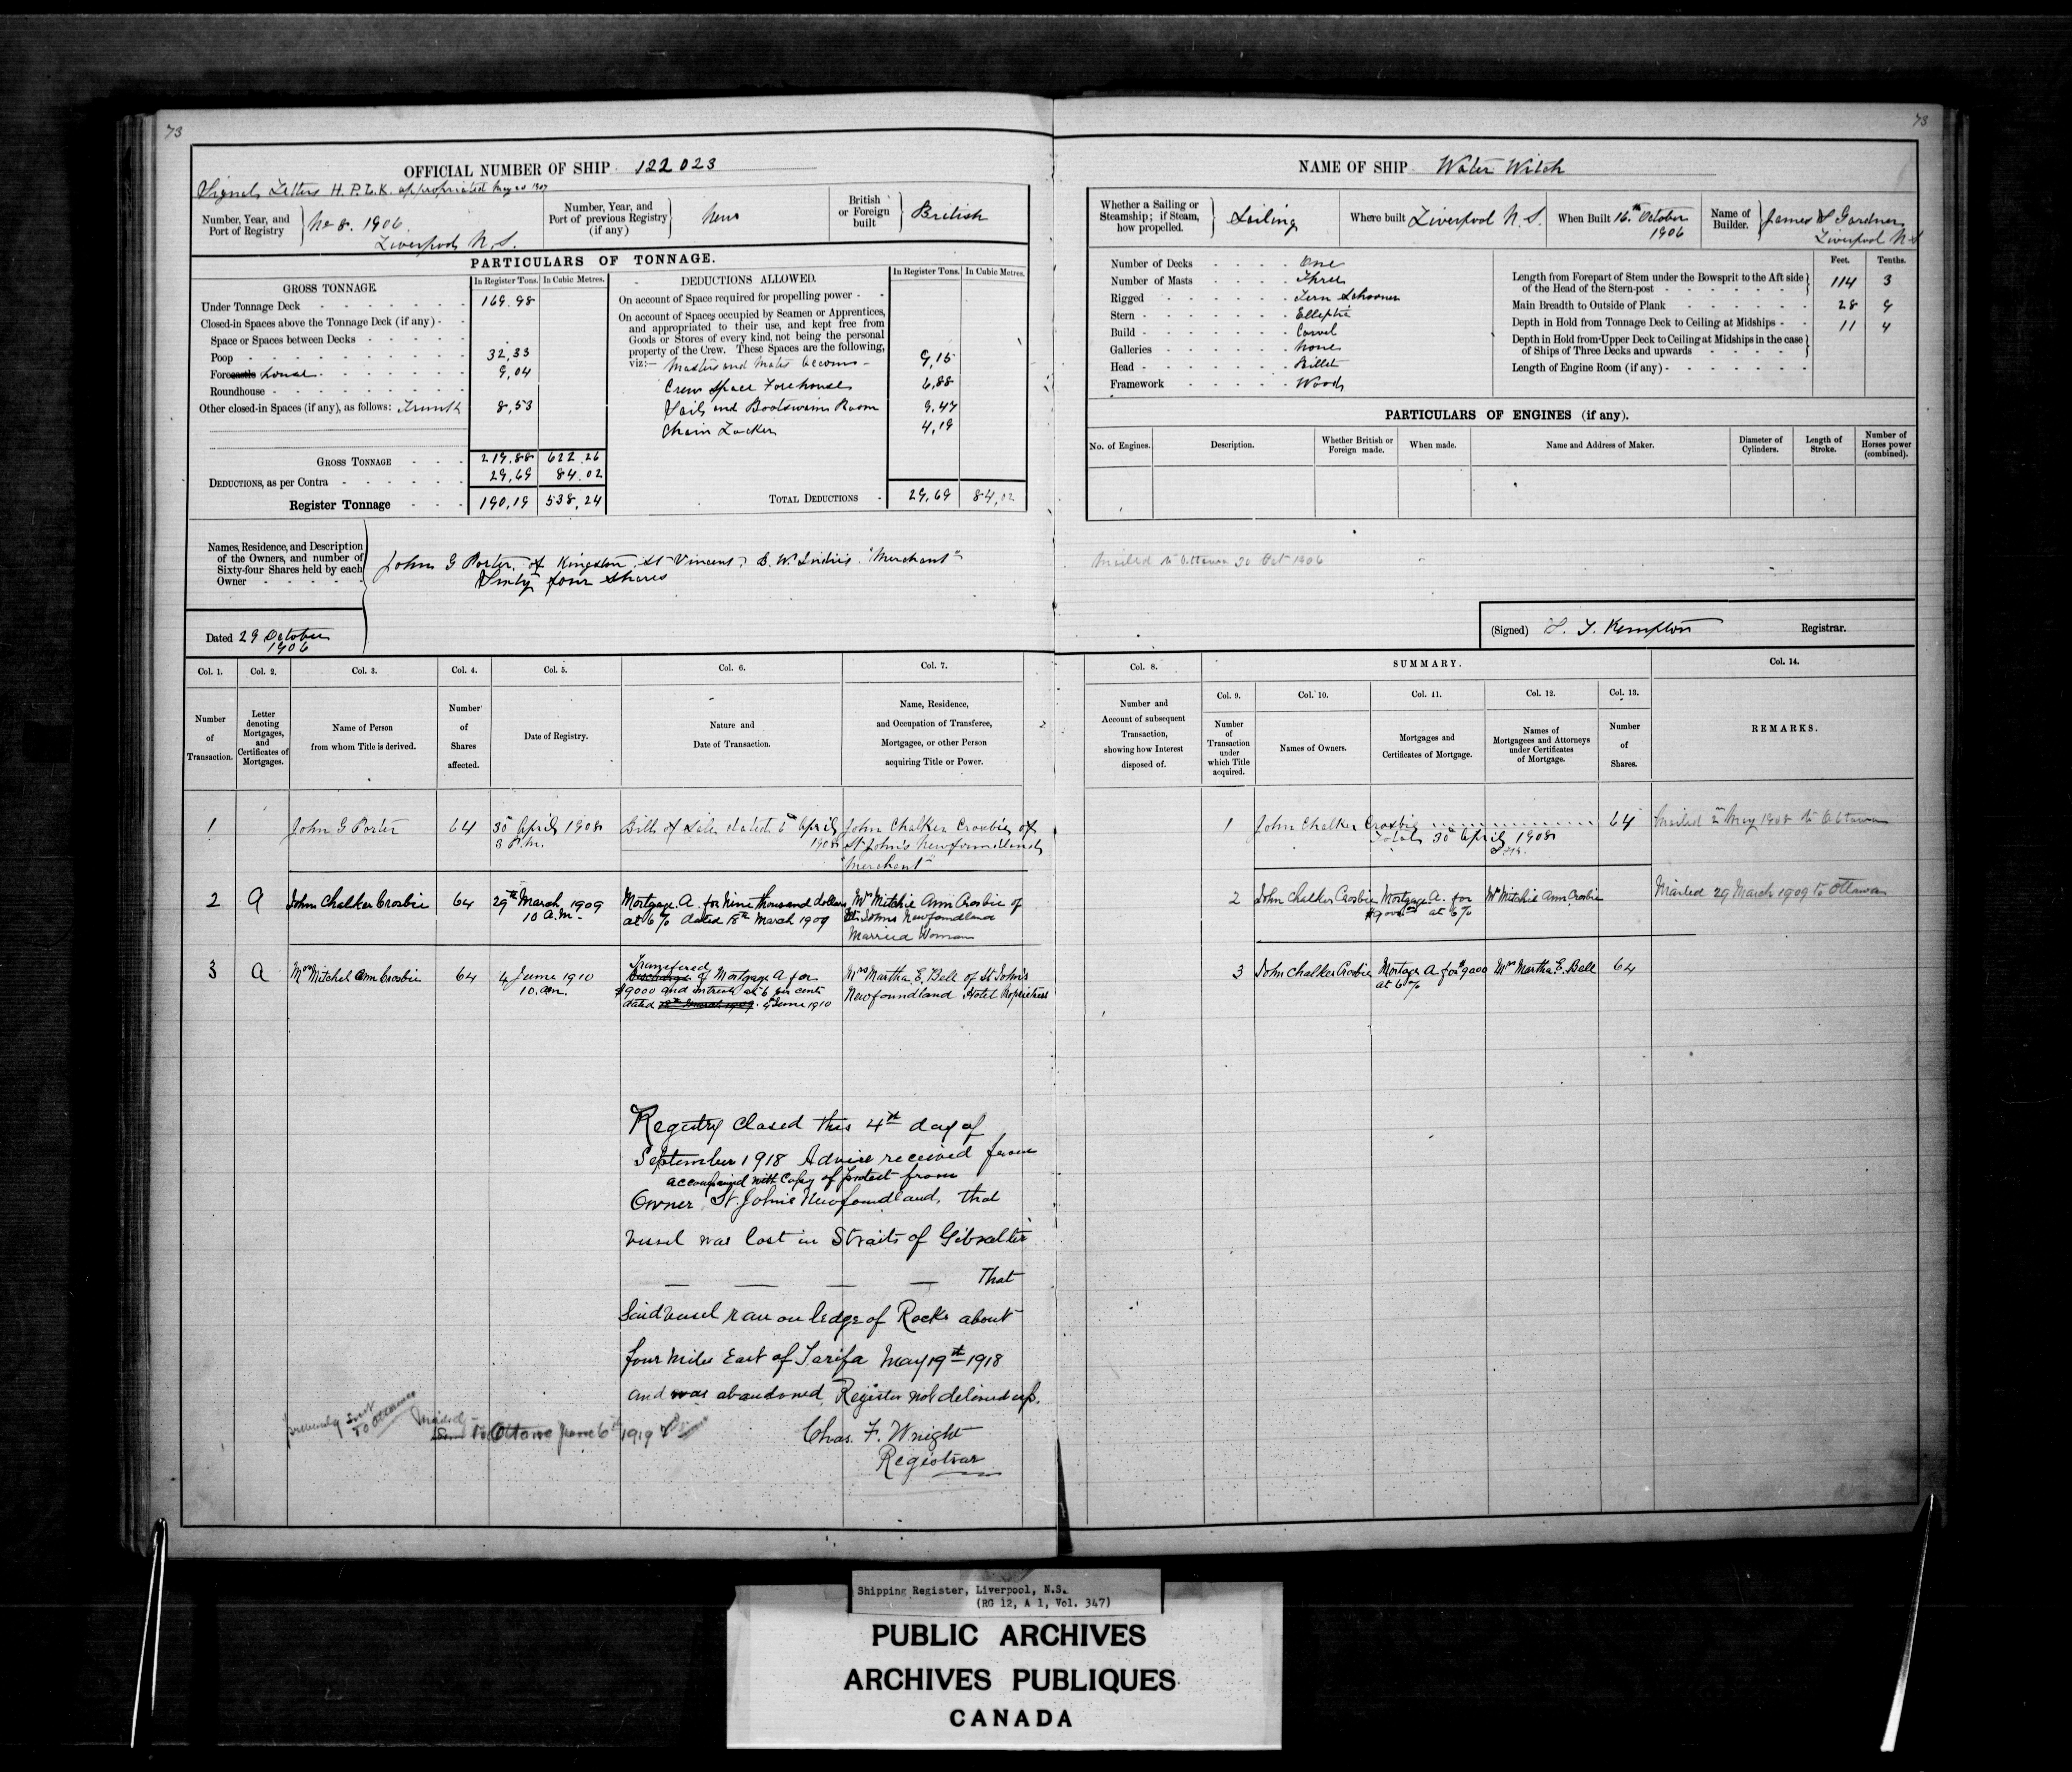 73
73
OFFICIAL NUMBER OF SHIP 122023
Signal Letters H.P.L.K. appropriated May 20 1907
Number, Year, and Port of Registry } No 8. 1906 Liverpool N.S.
Number, Year, and Port of previous Registry (if any) } New
British or Foreign built } British
PARTICULARS OF TONNAGE.
GROSS TONNAGE.
In Register Tons. In Cubic Metres.
Under Tonnage Deck 169.98
Closed-in Spaces above the Tonnage Deck (if any)
Space or Spaces between Decks
Poop 32,33
Forecastle House 9,04
Roundhouse
Other closed-in Spaces (if any), as follows: Trunk 8,53
GROSS TONNAGE 219,88 622.26
DEDUCTIONS, as per Contra 29,69 84.02
Register Tonnage 190,19 538,24
DEDUCTIONS ALLOWED.
In Register Tons. In Cubic Metres.
On account of Space required for propelling power
On account of Spaces occupied by Seamen or Apprentices,
and appropriated to their use, and kept free from
Goods or Stores of every kind, not being the personal
property of the Crew. These Spaces are the following,
viz:— Masters and Mates accom 9,15
Crew Space Forehouse 6,88
Sail and Boatswains Room 9,47
Chain Locker 4,19
TOTAL DEDUCTIONS 29,69 84,02
Names, Residence, and Description
of the Owners, and number of
Sixty-four Shares held by each
Owner
John G Porter, of Kingston, St Vincent, B. W. Indies. "Merchant"
Sixty four Shares
Dated 29 October
1906
NAME OF SHIP Water Witch
Whether a Sailing or Steamship; if Steam, how propelled. } Sailing
Where built Liverpool N.S.
When Built 16th October 1906
Name of Builder. } James S Gardner, Liverpool N.S
Number of Decks One
Number of Masts Three
Rigged Tern Schooner
Stern Elleptic
Build Carvel
Galleries None
Head Billet
Framework Wood
Feet. Tenths.
Length from Forepart of Stem under the Bowsprit to the Aft side of the Head of the Stern-post 114 3
Main Breadth to Outside of Plank 28 9
Depth in Hold from Tonnage Deck to Ceiling at Midships 11 4
Depth in Hold from Upper Deck to Ceiling at Midships in the case of Ships of Three Decks and upwards
Length of Engine Room (if any)
PARTICULARS OF ENGINES (if any).
No. of Engines. Description. Whether British or Foreign made. When made. Name and Address of Maker. Diameter of Cylinders. Length of Stroke. Number of Horses power (combined).
Mailed to Ottawa 30 Oct 1906
(Signed) T. Kempton Registrar.
Col. 1. Col. 2. Col. 3. Col. 4. Col. 5. Col. 6. Col. 7.
Number of Transaction.
Letter denoting Mortgages, and Certificates of Mortgages.
Name of Person from whom Title is derived.
Number of Shares affected.
Date of Registry.
Nature and Date of Transaction.
Name, Residence, and Occupation of Transferee, Mortgagee, or other Person acquiring Title or Power.
Col. 8. SUMMARY. Col. 14.
Col. 9. Col. 10. Col. 11. Col. 12. Col. 13.
Number and Account of subsequent Transaction, showing how Interest disposed of.
Number of Transaction under which Title acquired.
Names of Owners.
Mortgages and Certificates of Mortgage.
Names of Mortgagees and Attorneys under Certificates of Mortgage.
Number of Shares.
REMARKS.
1 John G Porter 64 30 April 1908 Bill of Sale dated 6th April John Chalker Crosbie of
3 P.m. 1908 St John's Newfoundland
"Merchant"
1 John Chalker Crosbie 64 Mailed 2nd May 1908 to Ottawa
Total 30th April 1908
2 A John Chalker Crosbie 64 29th March, 1909 Mortgage A. for Nine thousand dollars Mrs Mitchie Ann Crosbie of
10 A.M. at 6% dated 18th March 1909 St. Johns Newfoundland
Married Woman
2 John Chalker Crosbie Mortgage A. for Mrs Mitchie Ann Crosbie Mailed 29 March 1909 to Ottawa
$9000 at 6%
3 A Mrs Mitchel Ann Crosbie 64 4 June 1910 Transfered
Discharge of Mortgage A for Mrs Martha E. Bell of St John's
10. am. $9000 and intrest at 6 per cent Newfoundland Hotel Proprietress
dated 18th March 1909. 4th June 1910
3 John Chalker Crosbie Mortage A for $9000 Mrs Martha E. Bell 64
at 6%
Registry Closed this 4th day of
September 1918 Advice received from
accompanied with Copy of protest from
Owner St. John's Newfoundland, that
vessel was lost in Straits of Gibralter
— — — — That
Said vessel ran on ledge of Rocks about
four miles East of Tarifa May 19th 1918
and was abandoned, Register not delivered up.
Chas. F. Wright
Registrar
previously sent
to Ottawa
Mailed
to Ottawa June 6th 1919
Shipping Register, Liverpool, N.S.
(RG 12, A 1, Vol. 347)
PUBLIC ARCHIVES
ARCHIVES PUBLIQUES
CANADA